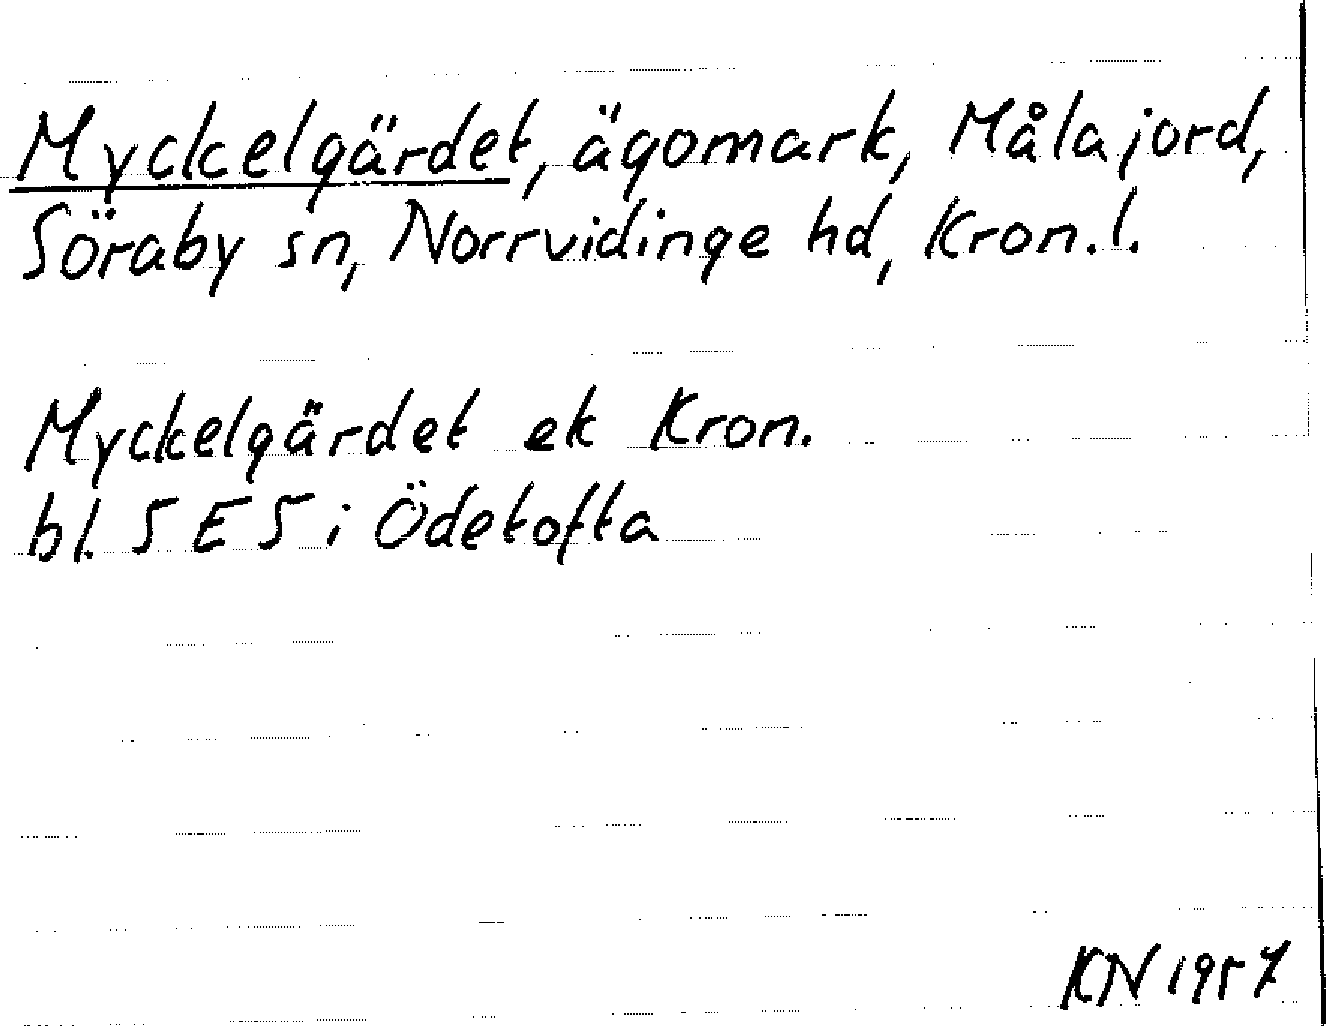 Myckelgärdet, ägomark, Målajord,
Söraby sn, Norrvidinge hd, Kron. l.
Myckelgärdet ek Kron.
bl. 5 E 5 i Ödetofta
KN 1957